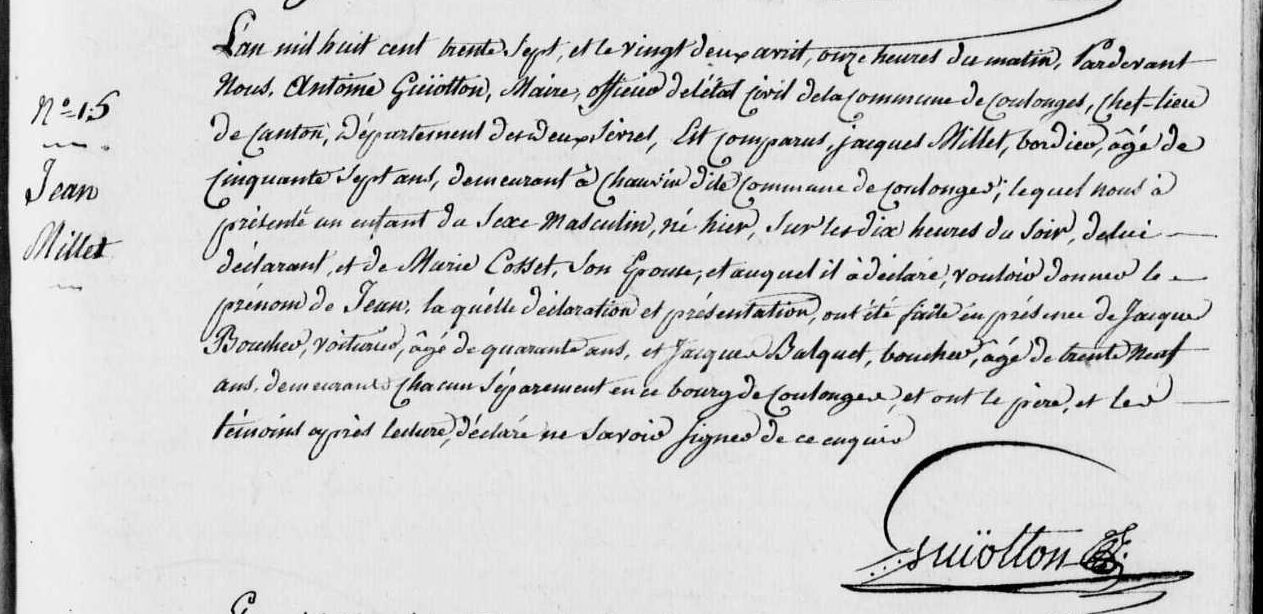 N.° 15
Jean
Millet
L'an mil huit cent trente sept, et le vingt deux avril, onze heures du matin, Pardevant
Nous, Antoine Guïotton, Maire, officier de l'état civil de la commune de Coulonges, chef-lieu
de Canton, Département des deux Sèvres, Est comparus, jacques Millet, bordier, âgé de
Cinquante Sept ans, demeurant à Chauvin dite Commune de Coulonges; lequel nous à
présenté un enfant du Sexe Masculin, né hier, Sur les dix heures du Soir, de lui
déclarant, et de Marie Cosset, Son Epouse, et auquel il à déclaré, vouloir donner le
prénom de Jean, la quélle déclaration et présentation, ont été faite en présence de Jacque
Boucher, voiturier, âgé de quarante ans, et Jacques Balquet, boucher, âgé de trente Neuf
ans, demeurant Chacun Séparement en ce bourg de Coulonges, et ont le père, et les
témoins après lecture, déclaré ne Savoir Signer de ce enquis
Guïotton